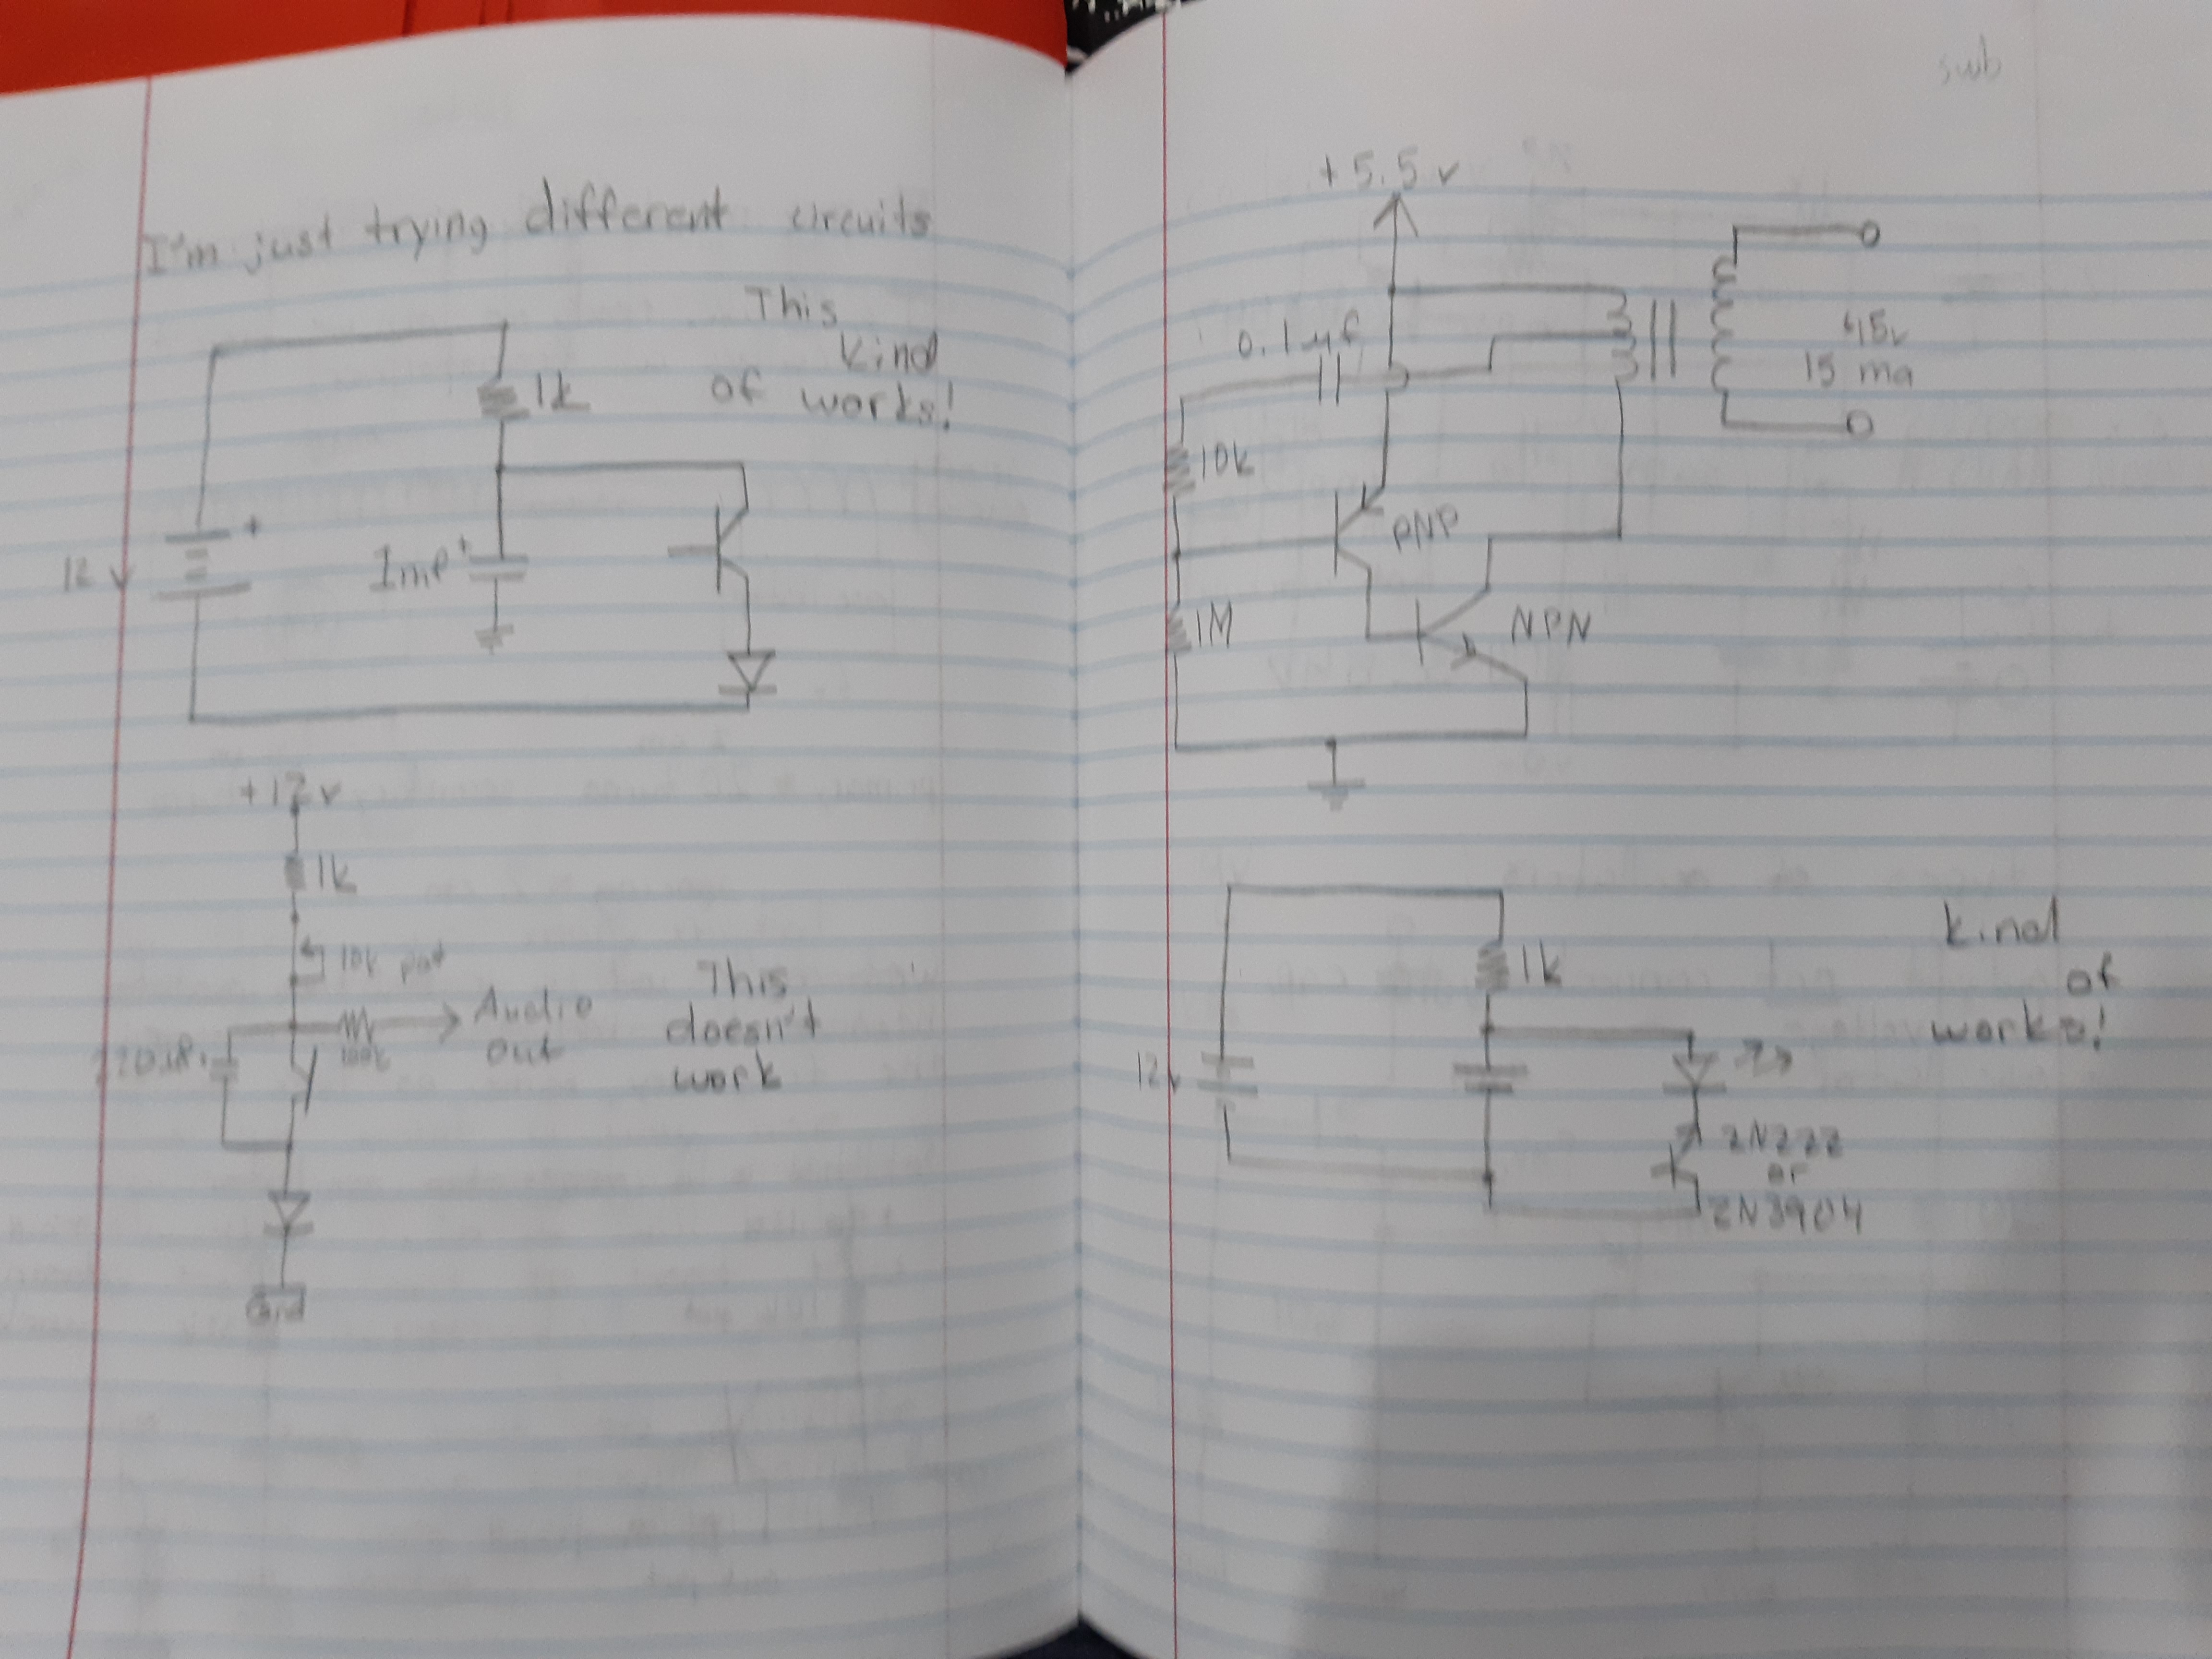 I'm just trying different circuits
This
kind
of works!
1k
+
12v
1mf +
+12v
1k
10k pot
Audio
out
100k
This
doesn't
work
Gnd
swb
+5.5v
0.1µf
15 ma
10k
PNP
1M
NPN
kind
of
works!
1k
12v
2N222
or
2N3904